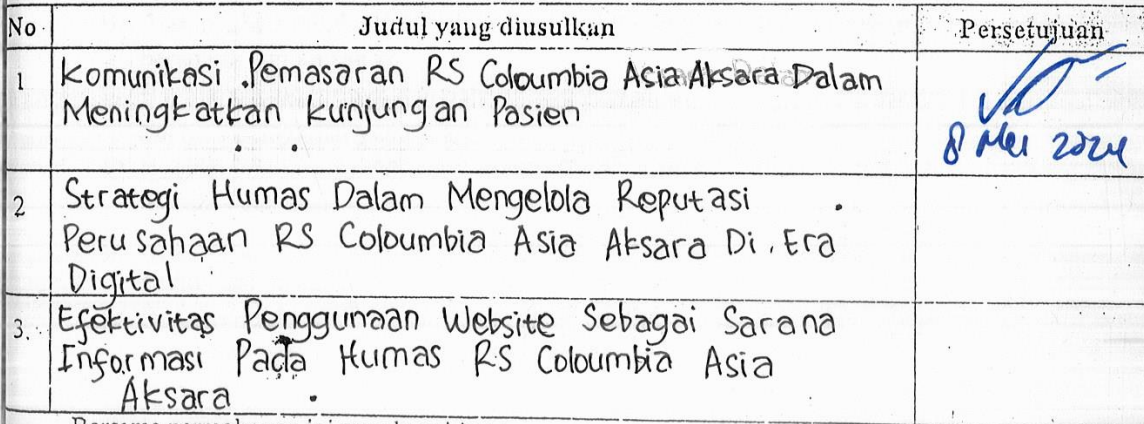 No Judul yang diusulkan Persetujuan
1 Komunikasi Pemasaran RS Coloumbia Asia Aksara Dalam
Meningkatkan Kunjungan Pasien
8 Mei 2024
2 Strategi Humas Dalam Mengelola Reputasi
Perusahaan RS Coloumbia Asia Aksara Di Era
Digital
3. Efektivitas Penggunaan Website Sebagai Sarana
Informasi Pada Humas RS Coloumbia Asia
Aksara